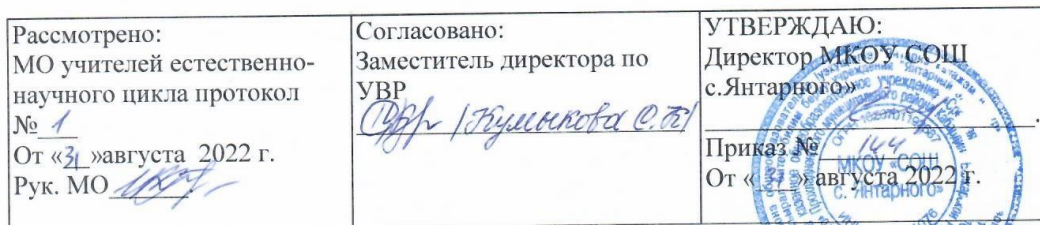 Рассмотрено:
МО учителей естественно-
научного цикла протокол
№ 1
От «31»августа 2022 г.
Рук. МО
Согласовано:
Заместитель директора по
УВР
/Кумыкова С.К/
УТВЕРЖДАЮ:
Директор МКОУ СОШ
с.Янтарного»
Приказ № 144
От «31» августа 2022 г.
МКОУ «СОШ
с. Янтарного»